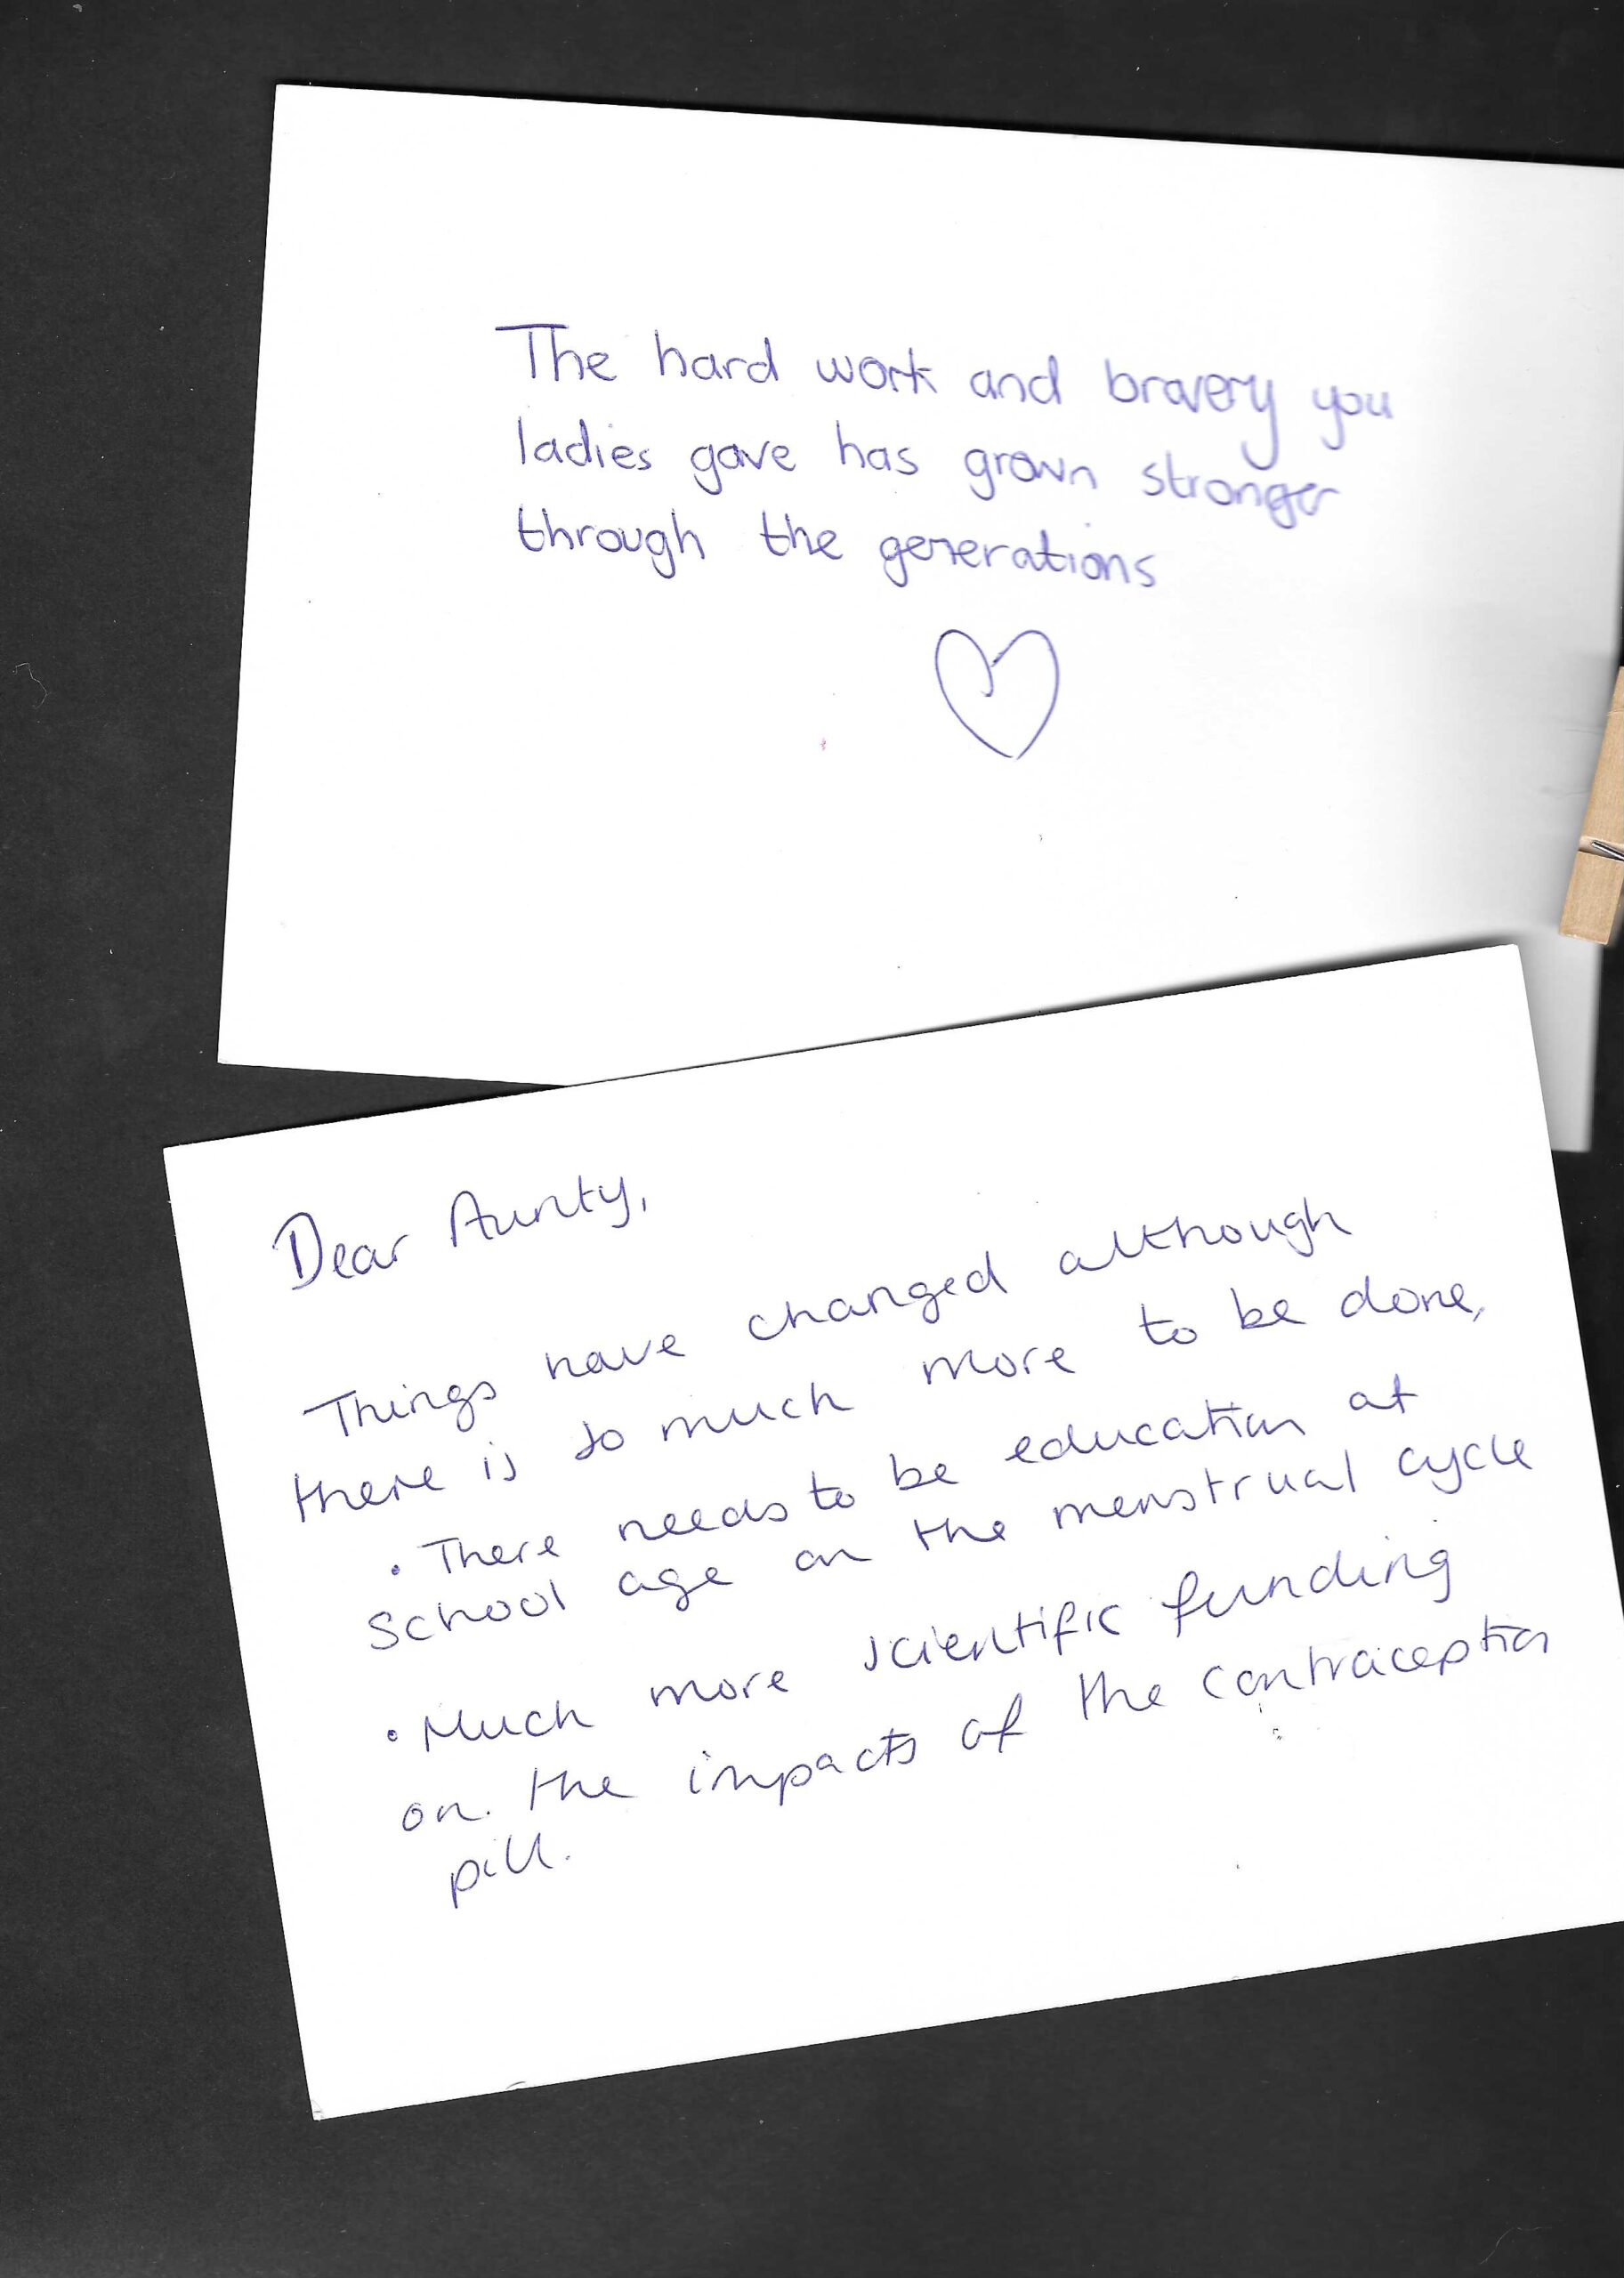 The hard work and bravery you
ladies gave has grown stronger
through the generations
Dear Aunty,
Things have changed although
there is so much more to be done,
• There needs to be education at
school age on the menstrual cycle
• Much more scientific funding
on. the impacts of the contraception
pill.